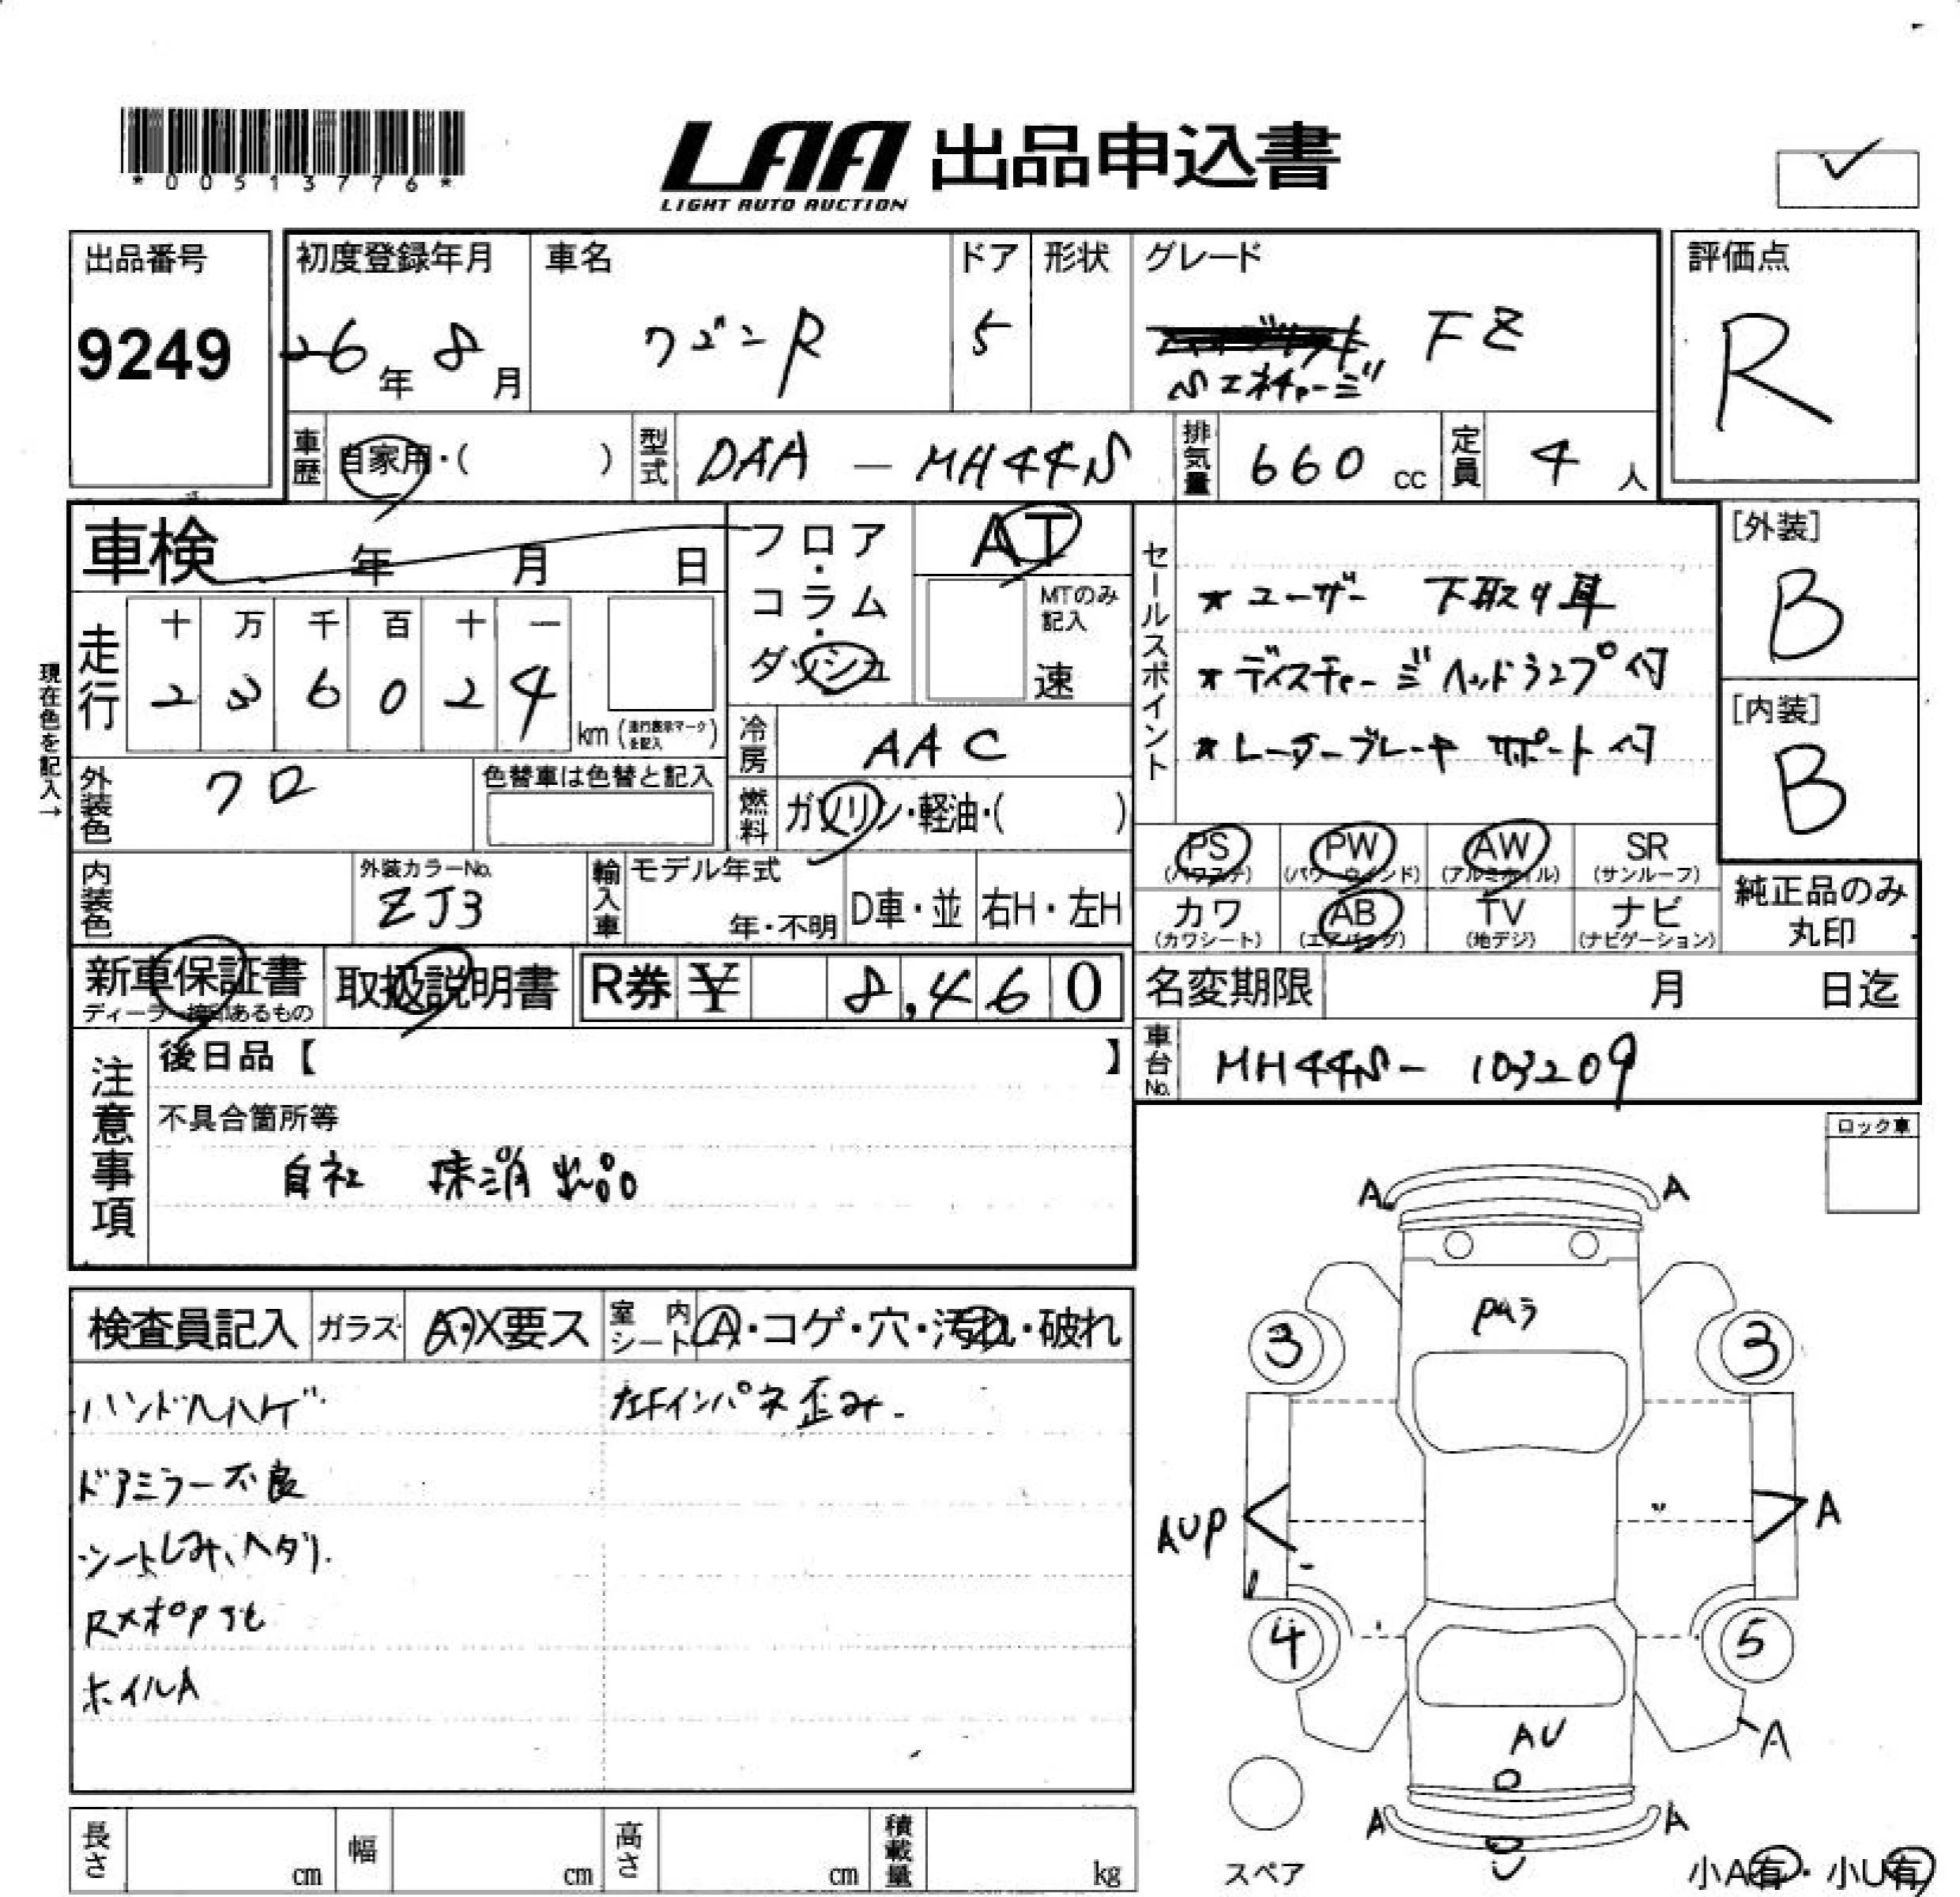 *00513776*
LAA 出品申込書
LIGHT AUTO AUCTION
出品番号
9249
初度登録年月
26年 8月
車名
ワゴンR
ドア
5
形状
グレード
FZ
Sエネチャージ
評価点
R
車歴 自家用・( )
型式 DAA - MH44S
排気量 660 cc
定員 4 人
車検 年 月 日
フロア・コラム・ダッシュ
AT
MTのみ記入
速
セールスポイント
★ユーザー 下取り車
★ディスチャージヘッドランプ付
★レーダーブレーキ サポート付
[外装]
B
[内装]
B
現在色を記入→
走行
十 万 千 百 十 一
2 3 6 0 2 4
km (走行表示マークを記入)
冷房 AAC
外装色 クロ
色替車は色替と記入
燃料 ガソリン・軽油・( )
内装色
外装カラーNo.
ZJ3
輸入車 モデル年式
年・不明
D車・並
右H・左H
PS (パワステ)
PW (パワーウインド)
AW (アルミホイル)
SR (サンルーフ)
カワ (カワシート)
AB (エアバッグ)
TV (地デジ)
ナビ (ナビゲーション)
純正品のみ丸印
新車保証書
ディーラー捺印あるもの
取扱説明書
R券 ¥ 8,460
名変期限 月 日迄
車台No. MH44S- 103209
注意事項
後日品【 】
不具合箇所等
自社 抹消出品
ロック車
検査員記入
ガラス A・X要ス
室内シート A・コゲ・穴・汚れ・破れ
ハンドルハゲ
左Fインパネ歪み.
ドアミラー不良
シートしみ、ヘタリ.
ホイルA
A A
3 3
AUP A
4 5
AU
A
A A
U
スペア
小A有・小U有
長さ cm
幅 cm
高さ cm
積載量 kg